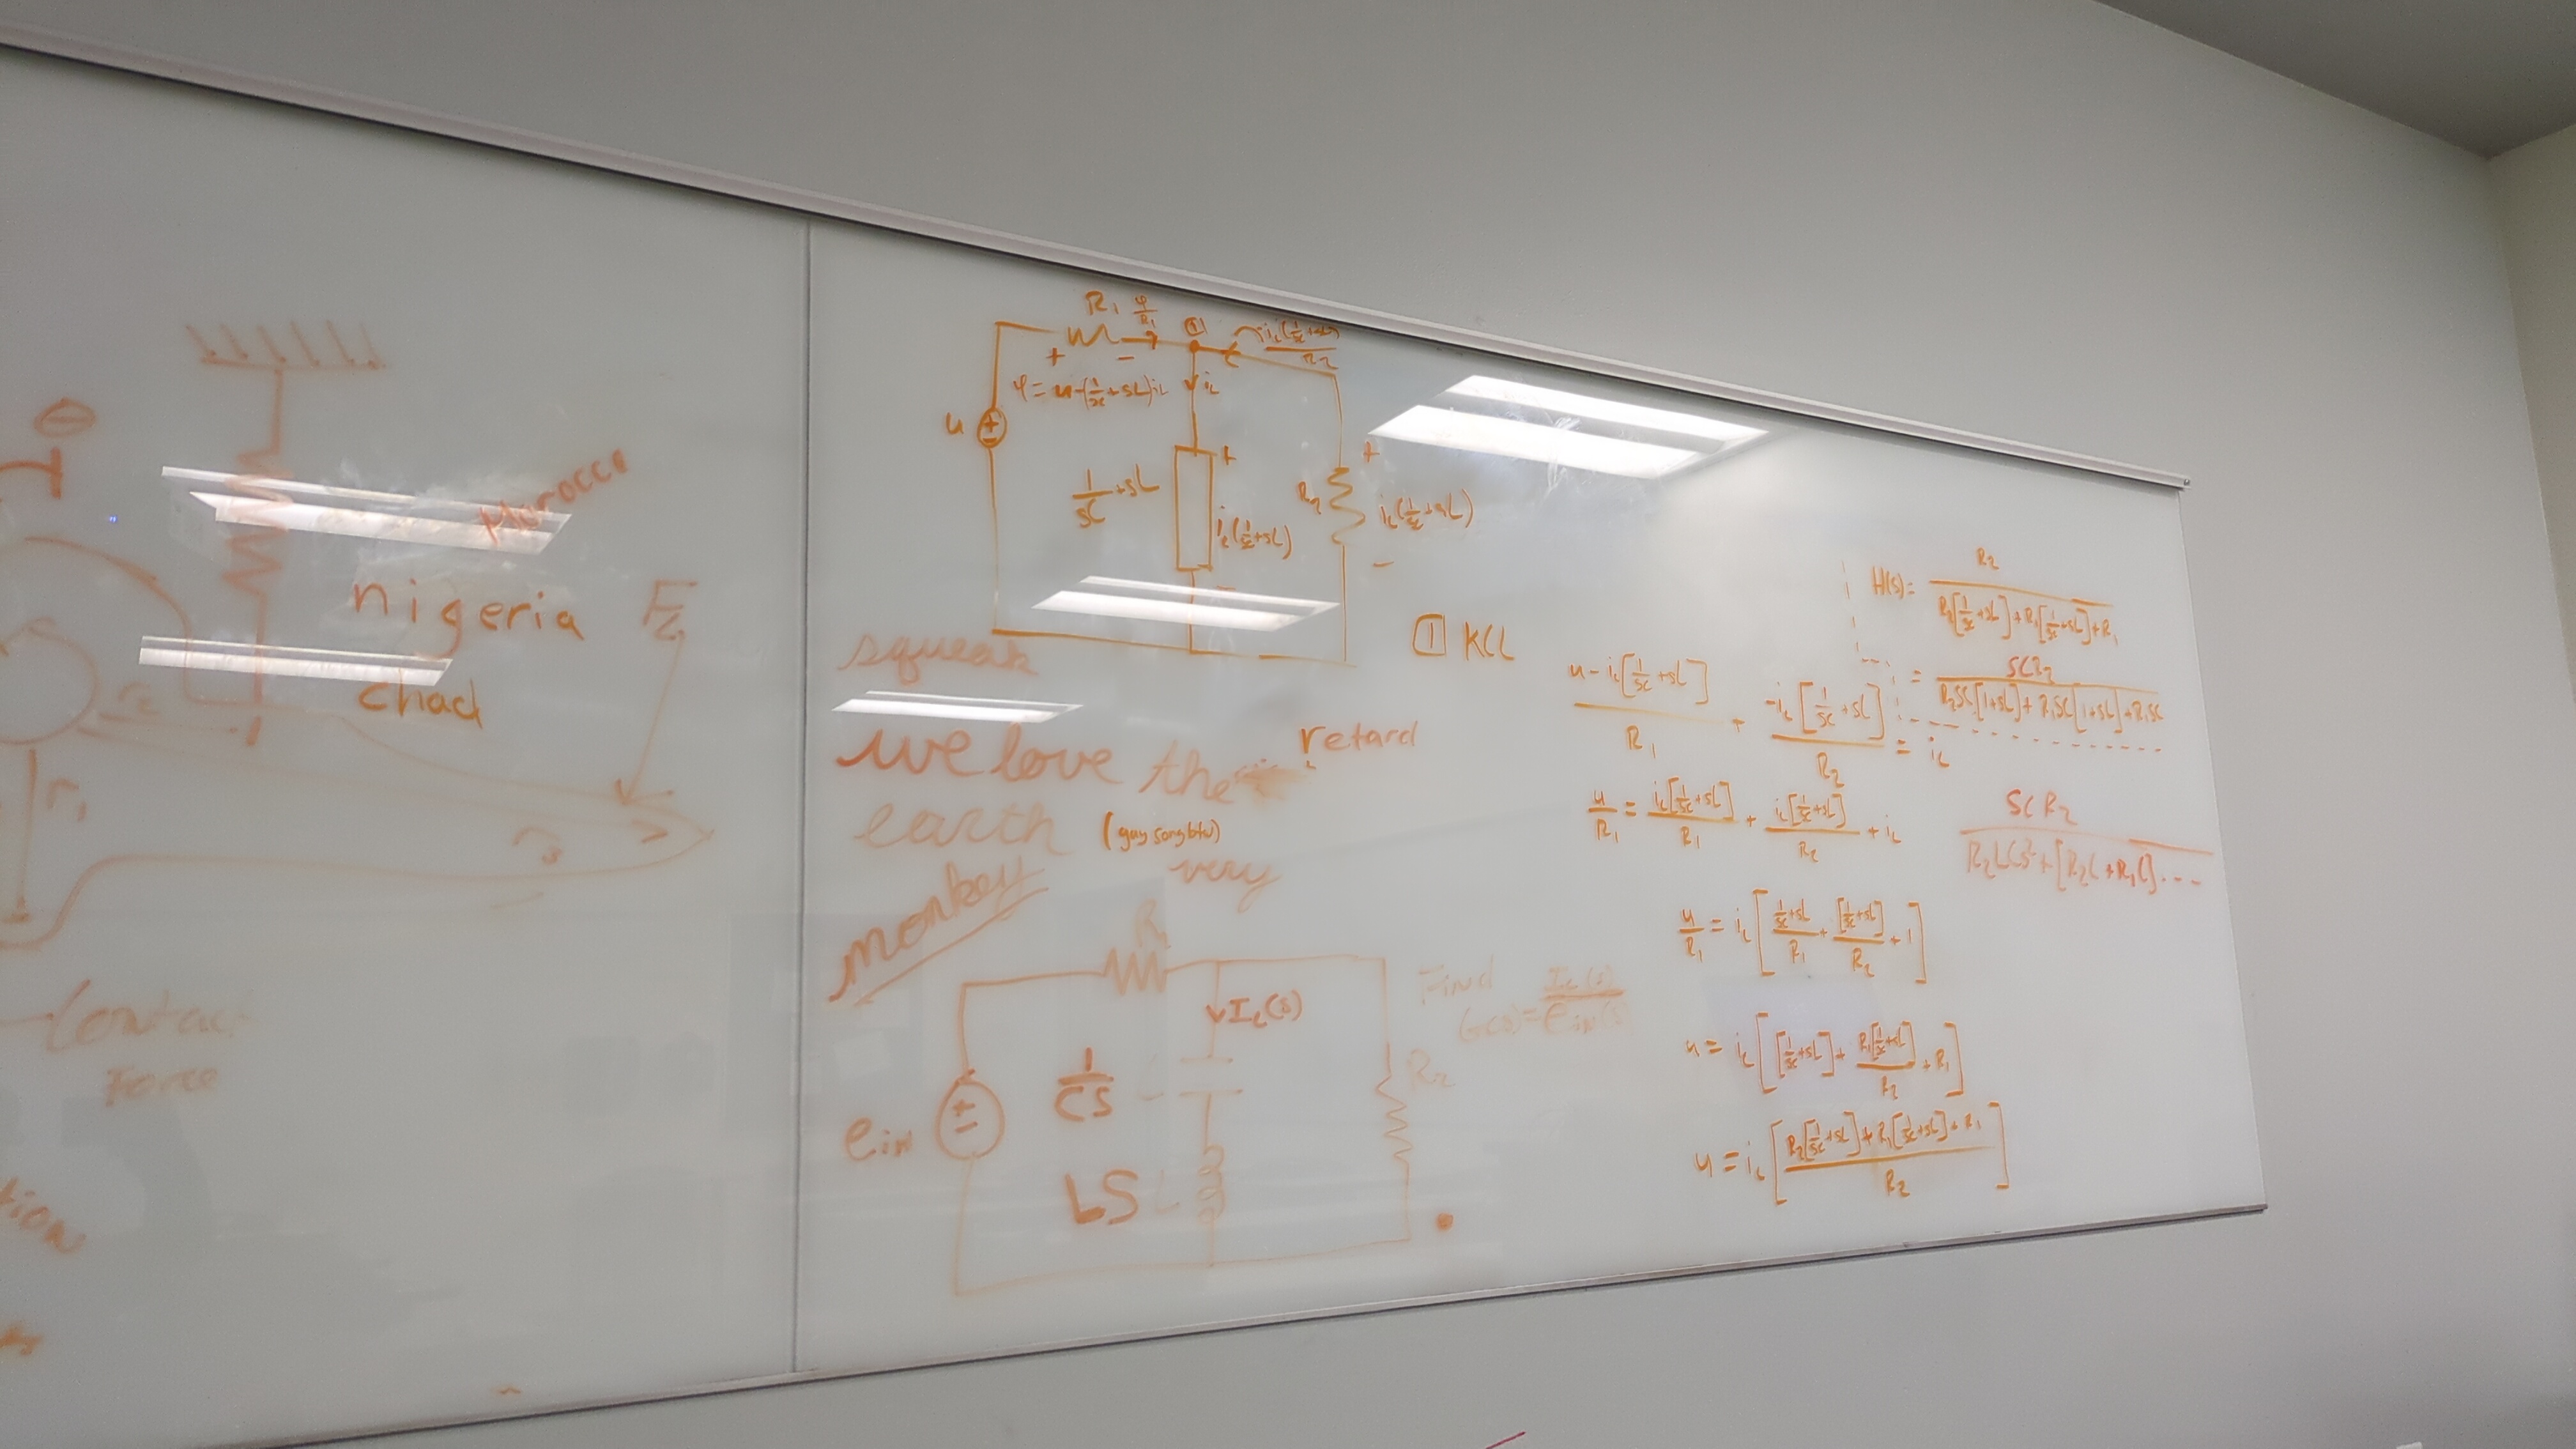 θ
Morocco
nigeria
chad
F
r₂
r₁
r₃
Contact
Force
tion
R₁ φ/R₁ ①
+ −
φ = u-(1/sC + sL)i_L
i_L
-i_L(1/sC + sL)/R₂
u
1/sC + sL
+
i_L(1/sC + sL)
−
R₂
+
i_L(1/sC + sL)
−
squeak
we love the retard
earth (gay song btw)
very
monkey
R₁
I_L(s)
e_in
1/CS
LS L
R₂
Find
G(s) = I_L(s)/e_in(s)
① KCL
u - i_L[1/sC + sL]/R₁ + -i_L[1/sC + sL]/R₂ = i_L
u/R₁ = i_L[1/sC + sL]/R₁ + i_L[1/sC + sL]/R₂ + i_L
u/R₁ = i_L[(1/sC + sL)/R₁ + [1/sC + sL]/R₂ + 1]
u = i_L[[1/sC + sL] + R₁[1/sC + sL]/R₂ + R₁]
u = i_L[(R₂[1/sC + sL] + R₁[1/sC + sL] + R₁)/R₂]
H(s) = R₂/(R₂[1/sC + sL] + R₁[1/sC + sL] + R₁)
= SCR₂/(R₂SC[1+sL] + R₁SC[1+sL] + R₁SC)
SCR₂
R₂LCs² + [R₂C + R₁C] ...